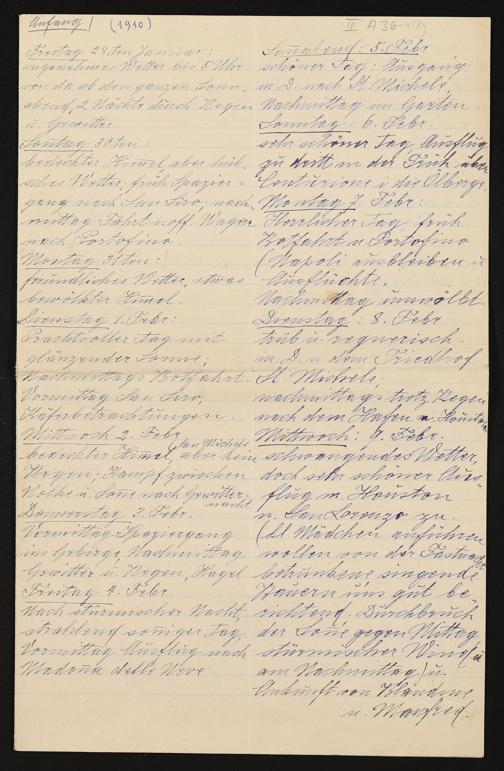 Anfang! (1910)
Freitag 28ten Januar:
angenehmes Wetter bis 5 Uhr
von da ab den ganzen Sonn-
abend, 2 Nächte durch Regen
u. Gewitter
Sontag 30ten:
bedeckter Himel, aber hüb-
sches Wetter, früh Spazier-
gang nach San Siro, nach-
mittag Fahrt i. off. Wagen
nach Portofino.
Montag 31ten:
freundliches Wetter, etwas
bewölkter Himel.
Dienstag 1. Febr:
Prachtvoller Tag mit
glänzender Sonne;
Nachmittags Botfahrt.
Vormittag San Siro,
Käferbetrachtungen.
Mittwoch 2. Febr.
San Michele
bedeckter Himel, aber kein
Regen; Kampf zwischen
Wolke u. Sone nach Gewitter-
nacht
Donnerstag 3. Febr.
Vormittag Spaziergang
im Gebirge, Nachmittag
Gewitter u. Regen, Hagel
Freitag 4. Febr.
Nach stürmischer Nacht,
strahlend soniger Tag
Vormittag Ausflug nach
Madona delle Neve
III A36-4(1)
Sonabend: 5. Febr.
schöner Tag: Ausgang
m. D. nach St. Michele,
Nachmittag im Garten.
Sonntag: 6. Febr.
sehr schöner Tag, Ausflug
zu dritt in der Früh über
Centurione i. die Ölberge.
Montag 7. Febr:
Herrlicher Tag früh
Botfahrt n. Portofino
(Napoli ausbleiben u
Ausflüchte,
Nachmittag umwölkt.
Dienstag: 8. Febr.
trüb u. regnerisch.
m. D. n. dem Friedhof
St. Michele;
nachmittags trotz Regen
nach dem Hafen m. Houston
Mittwoch: 9. Febr.
schwangendes Wetter
doch sehr schöner Aus-
flug m. Houston
n. San Lorenzo zu.
(12 Mädchen anführen
wollen von der Fastnacht
betrunkene singende
Bauern uns gut be-
richtend. Durchbruch
der Sone gegen Mittag,
stürmischer Wind (u
am Nachmittag) u.
Ankunft von Blandine
u. Manfred.